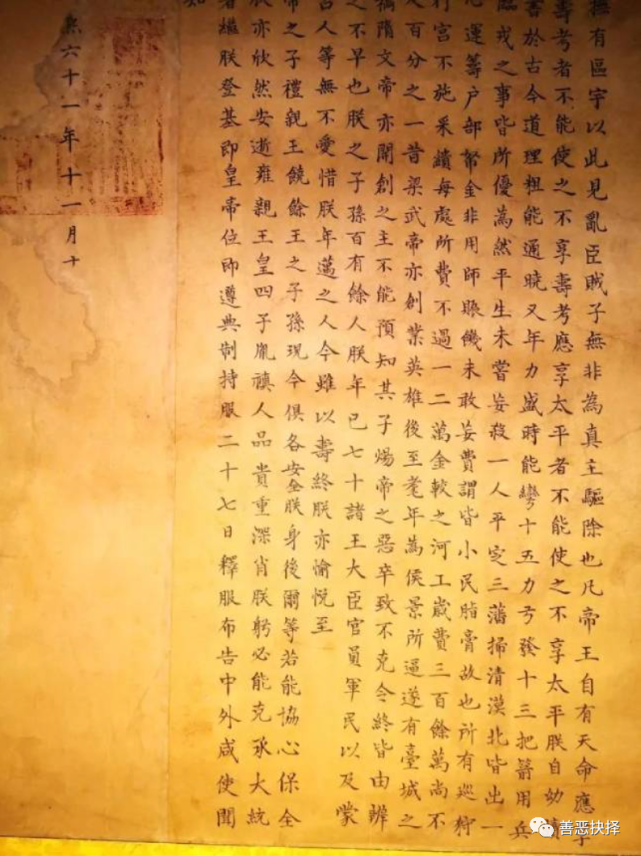 撫有區宇以此見亂臣賊子無非為真主驅除也凡帝王自有天命應享
壽考者不能使之不享壽考應享太平者不能使之不享太平朕自幼讀
書於古今道理粗能通曉又年力盛時能彎十五力弓發十三把箭用兵
臨戎之事皆所優為然平生未嘗妄殺一人平定三藩掃清漠北皆出一
心運籌戶部帑金非用師賑饑未敢妄費謂皆小民脂膏故也所有巡狩
行宮不施采繢每處所費不過一二萬金較之河工歲費三百餘萬尚不
及百分之一昔梁武帝亦創業英雄後至耄年為侯景所逼遂有臺城之
禍隋文帝亦開創之主不能預知其子煬帝之惡卒致不克令終皆由辨
之不早也朕之子孫百有餘人朕年已七十諸王大臣官員軍民以及蒙
古人等無不愛惜朕年邁之人今雖以壽終朕亦愉悅至
帝之子禮親王饒餘王之子孫現今俱各安全朕身後爾等若能協心保全
朕亦欣然安逝雍親王皇四子胤禛人品貴重深肖朕躬必能克承大統
著繼朕登基即皇帝位即遵典制持服二十七日釋服布告中外咸使聞
知
熙六十一年十一月十
善恶抉择